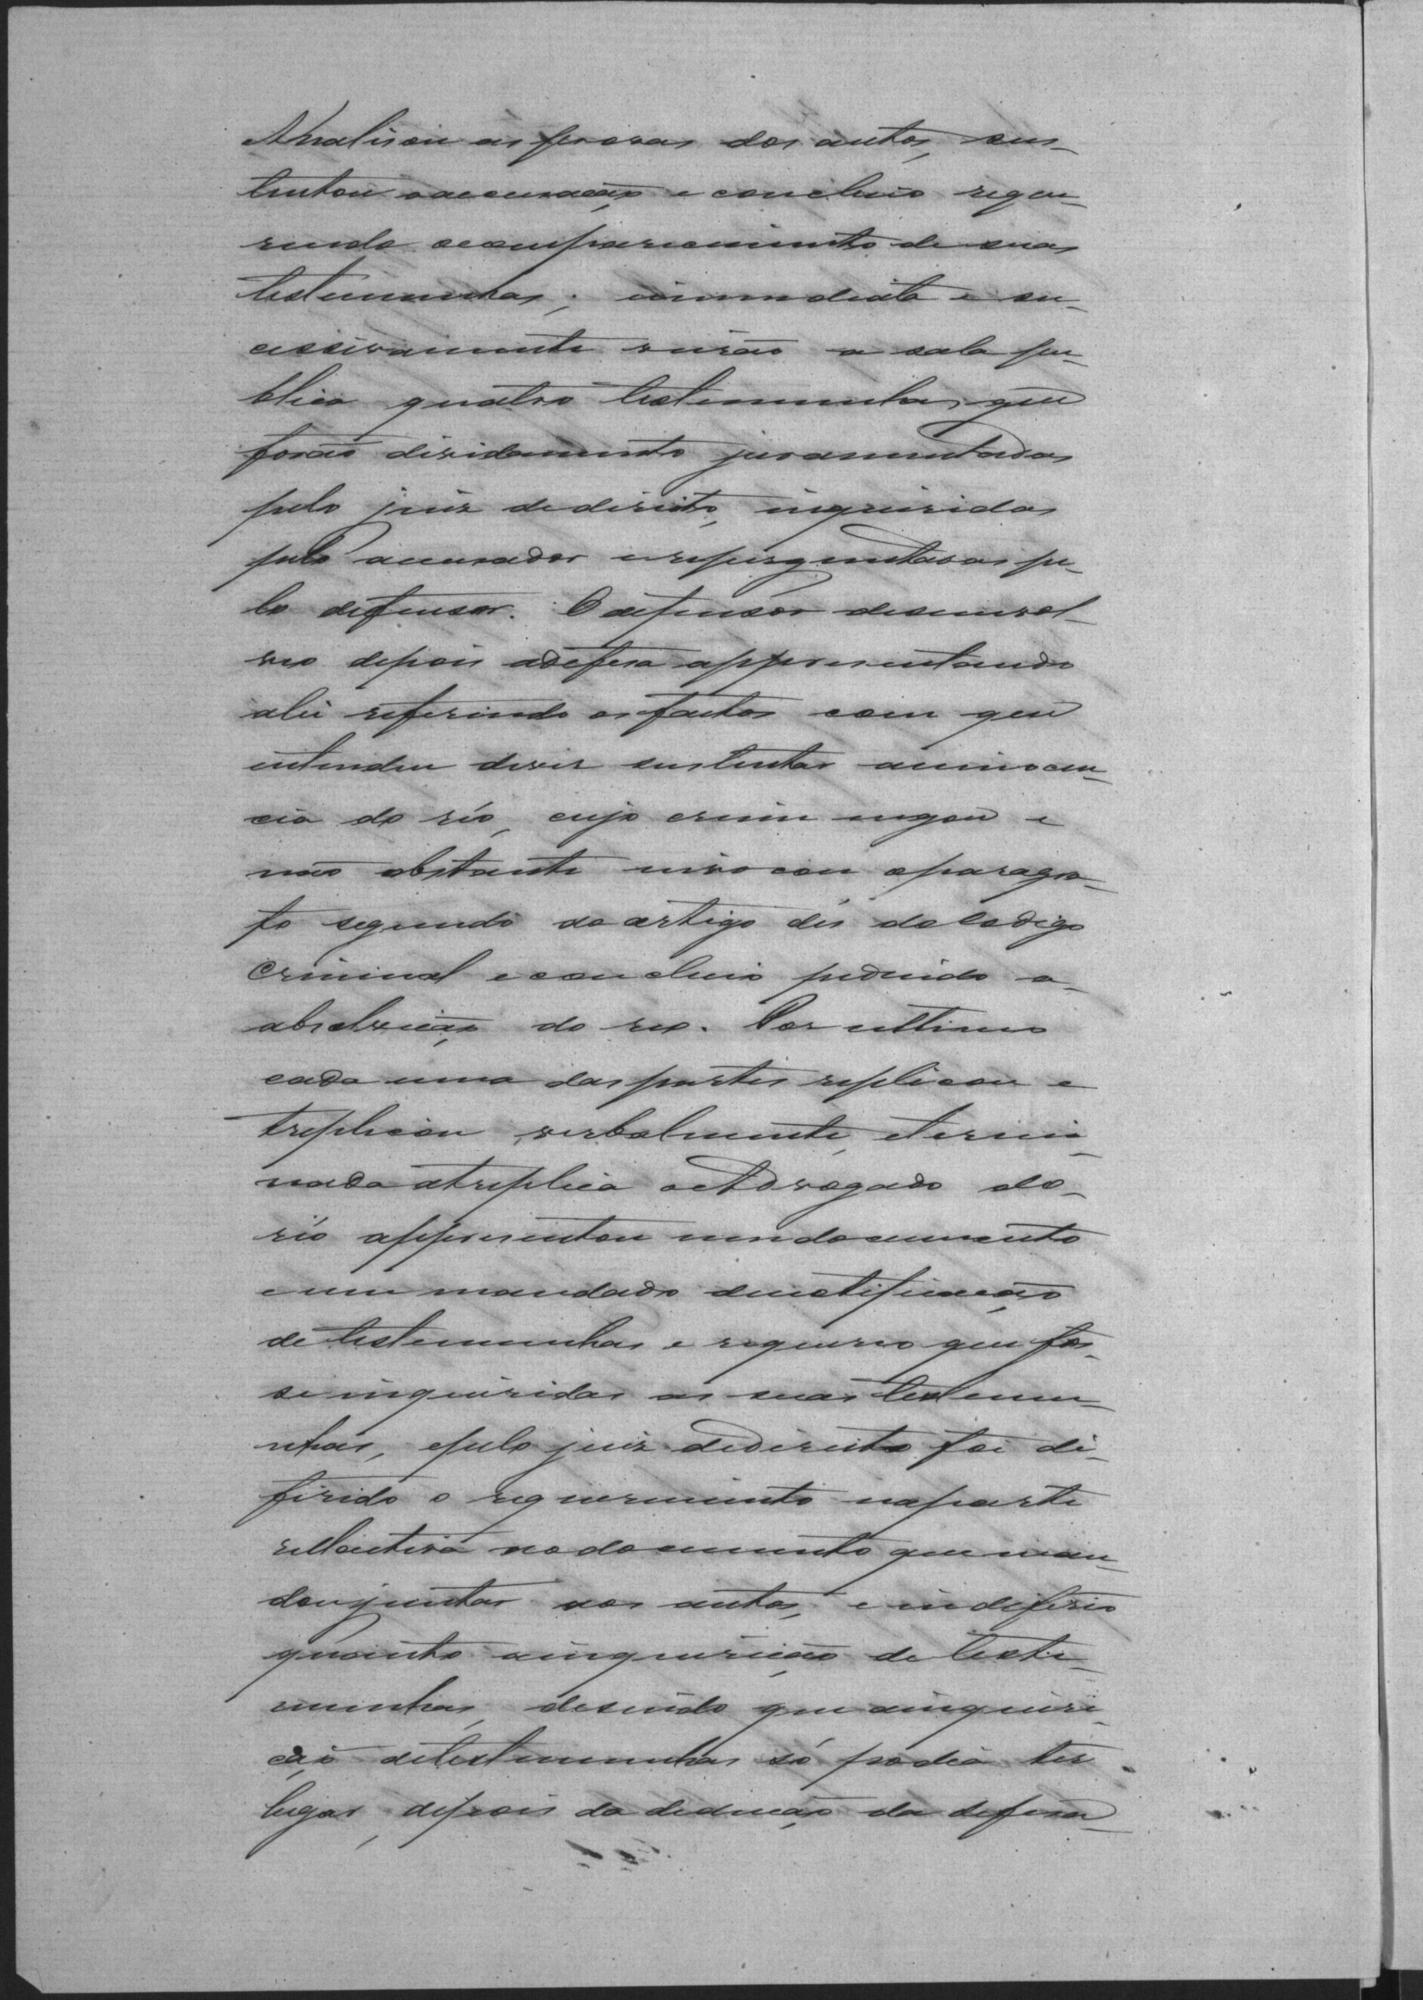 Analisou as provas dos autos, sus-
tentou a accusação e concluio reque-
rendo o comparecimento de suas
testemunhas; immediata e su-
cessivamente virão a sala pu-
blica quatro testemunhas que
forão devidamente juramentadas
pelo juiz de direito, inqueridas
pelo accusador e reperguntavas pe-
lo defensor. O defensor desenvol-
veo depois a defesa appresentando
alei referindo os factos com que
entendeu dever sustentar a innocen-
cia do réo, cujo crime negou e
não obstante invocou o paragra-
fo segundo do artigo dés do Codigo
Criminal e concluio pedindo a
absolvição do reo. Por ultimo
cada uma das partes replicou e
treplicou verbalmente, e termi-
nada a treplica o Advogado do
réo appresentou um documento
e um mandado de notificação
de testemunhas e requereo que fos-
se inqueridas as suas testemu-
nhas, e pelo juiz de direito foi de-
ferido o requerimento na parte
rellactiva no documento que man-
dou juntar aos autos, e indeferio
quanto a inquirição de teste-
munhas, dizendo que a inquiri-
ção de testemunhas só podia ter
lugar, depois da deducção da defesa